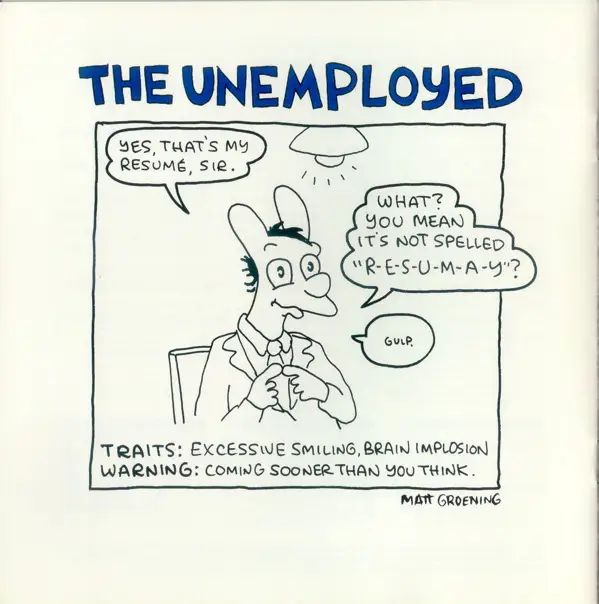 THE UNEMPLOYED
YES, THAT'S MY
RESUMÉ, SIR.
WHAT?
YOU MEAN
IT'S NOT SPELLED
"R-E-S-U-M-A-Y"?
GULP.
TRAITS: EXCESSIVE SMILING, BRAIN IMPLOSION
WARNING: COMING SOONER THAN YOU THINK.
MATT GROENING